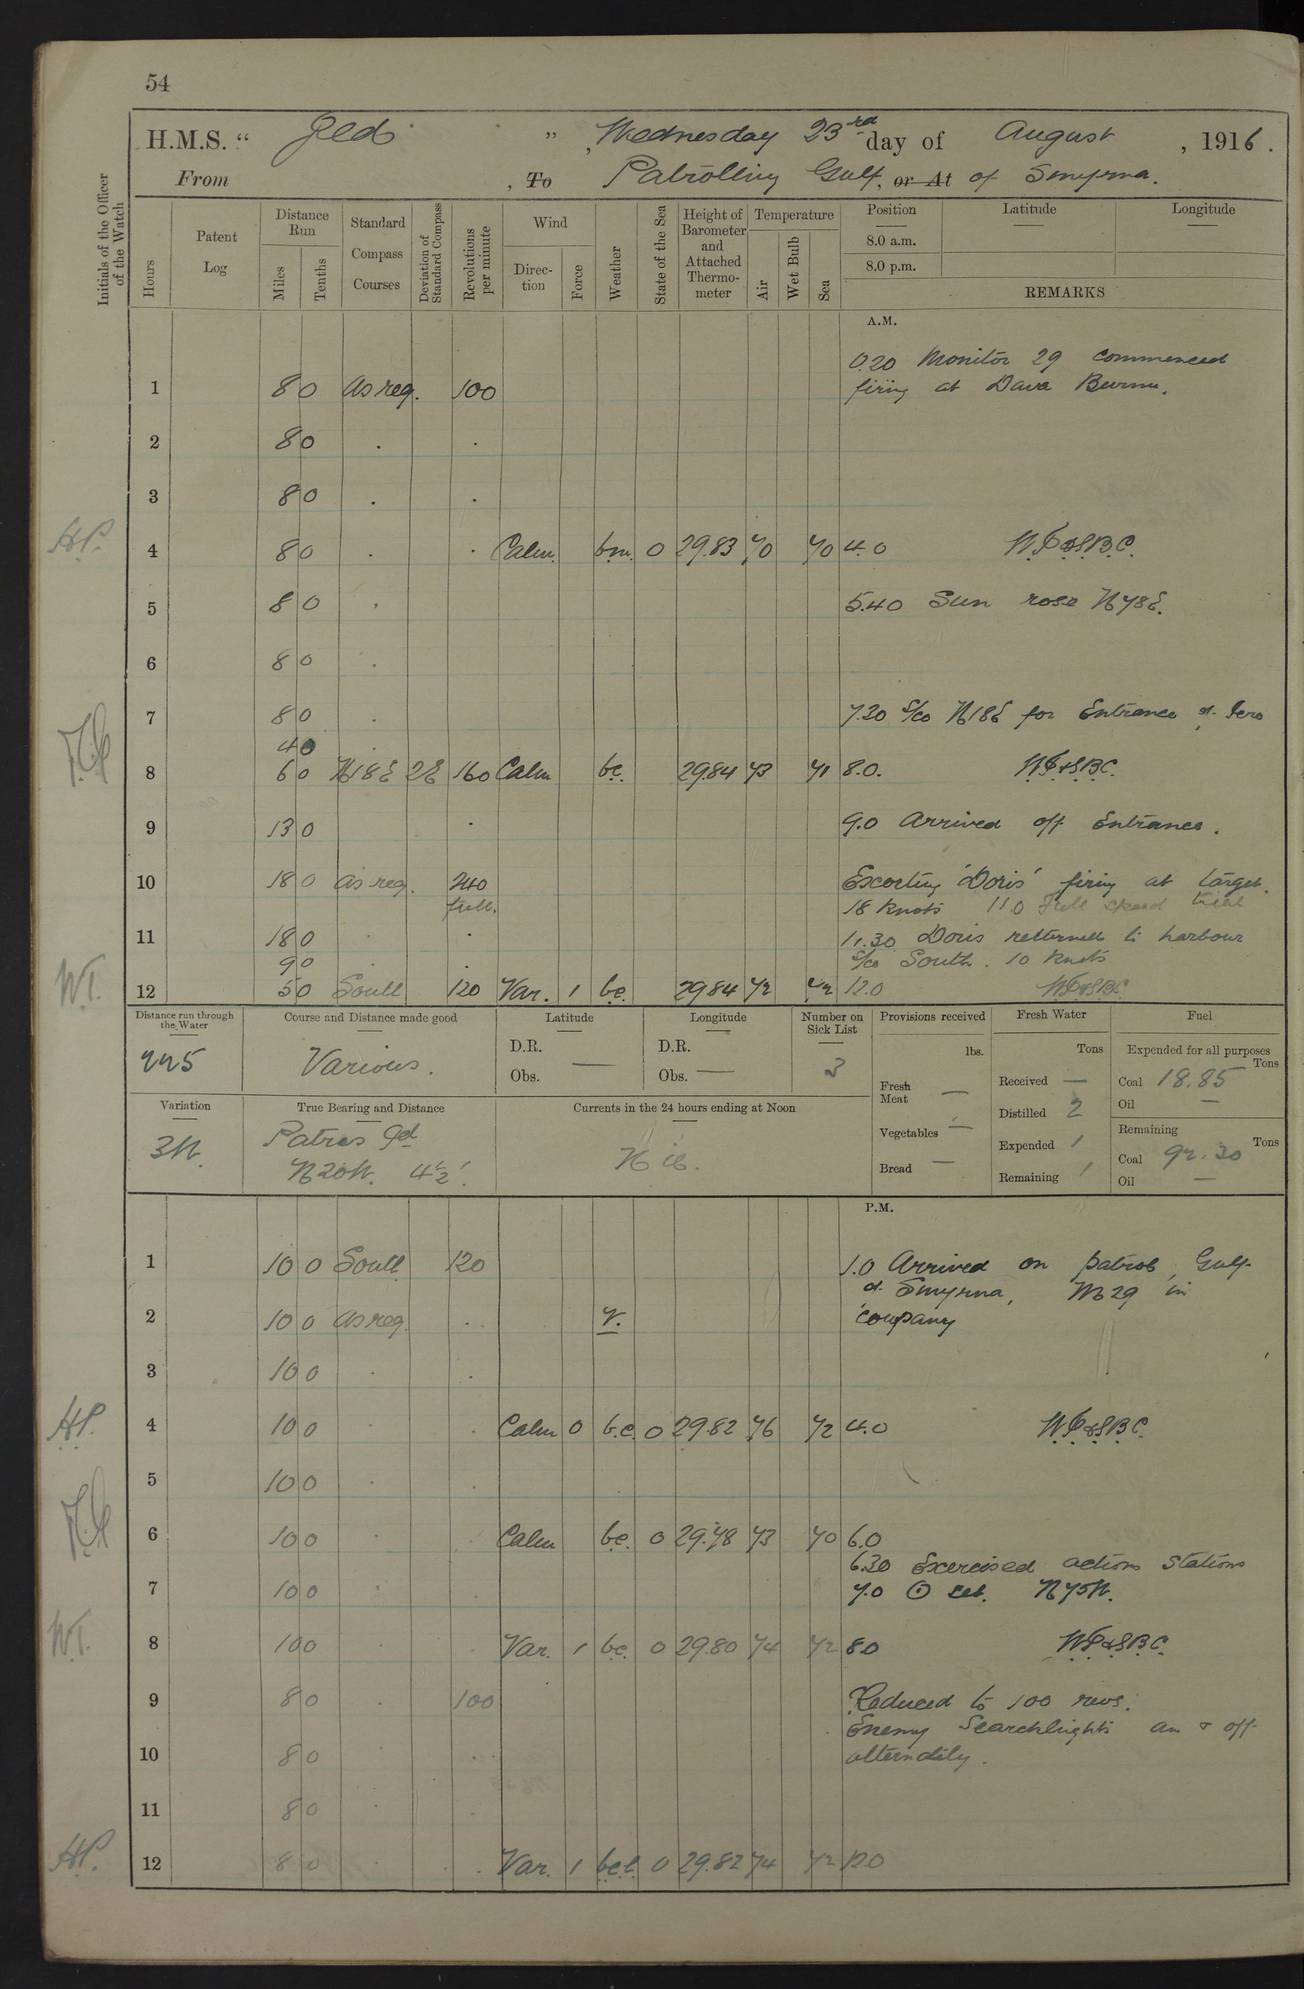 54
H.M.S. “ Jed ” , Wednesday 23rd day of August , 1916.
From , To Patrolling Gulf, or At of Smyrna.
Initials of the Officer of the Watch
Hours
Patent Log
Distance Run
Miles
Tenths
Standard Compass Courses
Deviation of Standard Compass
Revolutions per minute
Wind
Direction
Force
Weather
State of the Sea
Height of Barometer and Attached Thermometer
Temperature
Air
Wet Bulb
Sea
Position
Latitude
Longitude
8.0 a.m.
8.0 p.m.
REMARKS
A.M.
0.20 Monitor 29 commenced
1 8 0 As req. 100 firing at Dava Burnu.
2 8 0 . .
3 8 0 . .
H.P. 4 8 0 . . Calm. bm. 0 29.83 70 70 4.0 N.P.&S.B.C.
5 8 0 . 5.40 Sun rose N78E.
6 8 0 .
7 8 0 . 7.30 S/Co N18E for Entrance of Iero
4 0 .
8 6 0 N18E 2E 160 Calm bc. 29.84 73 71 8.0. N.P.&S.B.C.
9 13 0 . 9.0 Arrived off Entrance.
10 18 0 as req. 240 Escorting 'Doris' firing at target.
full. 18 knots 11.0 Full speed trial
11 18 0 . . 11.30 Doris returned to harbour
9 0 . . S/Co South. 10 knots
W.T. 12 5 0 South 120 Var. 1 bc. 29.84 72 72 12.0 N.P.&S.B.C.
Distance run through the Water
225
Course and Distance made good
Various.
Latitude
D.R.
Obs. —
Longitude
D.R.
Obs. —
Number on Sick List
3
Provisions received
lbs.
Fresh Meat —
Vegetables —
Bread —
Fresh Water
Tons
Received —
Distilled 2
Expended 1
Remaining 1
Fuel
Expended for all purposes
Tons
Coal 18.85
Oil —
Remaining
Tons
Coal 92.30
Oil —
Variation
3W.
True Bearing and Distance
Patras Gd
N20W. 4½'
Currents in the 24 hours ending at Noon
Nil.
P.M.
1 10 0 South 120 1.0 Arrived on patrol, Gulf
of Smyrna, M29 in
2 10 0 as req. . v. company
3 10 0 . .
H.P. 4 10 0 . . Calm 0 b.c. 0 29.82 76 72 4.0 N.P.&S.B.C.
5 10 0 .
6 10 0 . . Calm bc. 0 29.78 73 70 6.0
6.30 Exercised action stations
7 10 0 . . 7.0 ⊙ set. N75W.
W.T. 8 10 0 . . Var. 1 bc. 0 29.80 74 72 8.0 N.P.&S.B.C.
9 8 0 . 100 Reduced to 100 revs.
Enemy Searchlights on & off
10 8 0 . . alternately.
11 8 0 . .
H.P. 12 8 0 . . Var. 1 bcl. 0 29.82 74 72 12.0